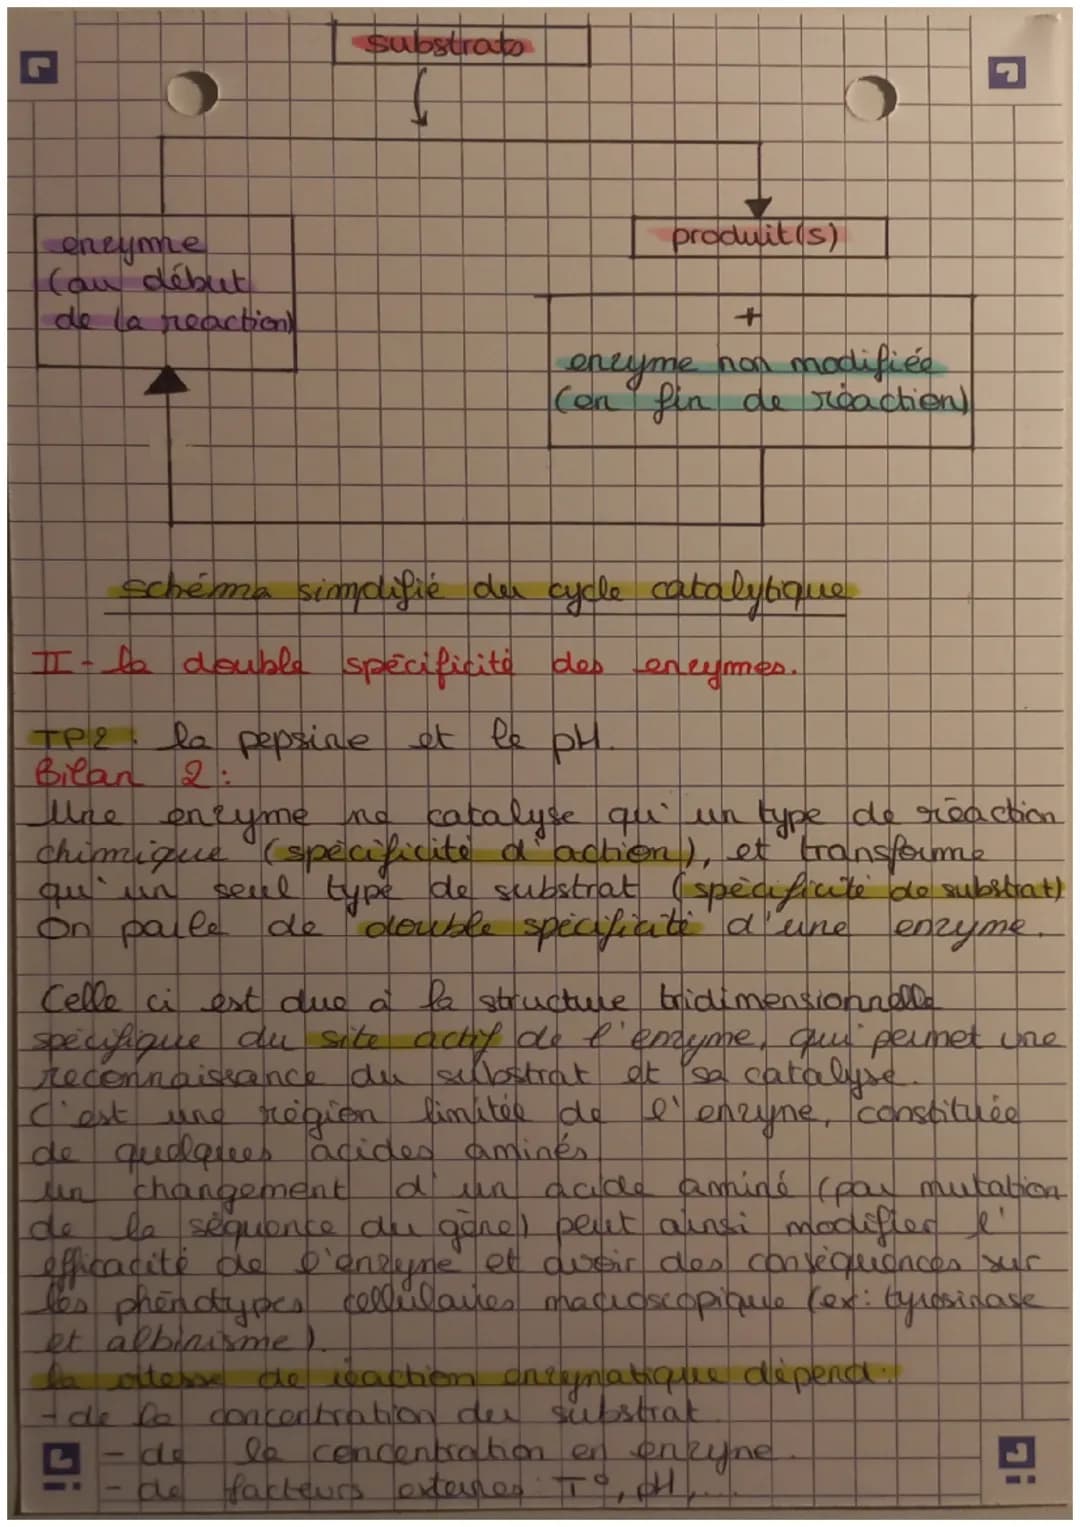 substrats
enzyme
(au début
de la reaction)
produit(s)
+
enzyme non modifiée
(en fin de réaction)
schéma simplifié du cycle catalytique
II - la double spécificité des enzymes.
TP2 : la pepsine et le pH.
Bilan 2 :
Une enzyme ne catalyse qu'un type de réaction
chimique (spécificité d'action), et transforme
qu'un seul type de substrat (spécificité de substrat)
On parle de double spécificité d'une enzyme.
Celle ci est due à la structure tridimensionnelle
spécifique du site actif de l'enzyme, qui permet une
reconnaissance du substrat et sa catalyse.
C'est une région limitée de l'enzyme, constituée
de quelques acides aminés
un changement d'un acide aminé (par mutation
de la séquence du gène) peut ainsi modifier l'
efficacité de l'enzyme et avoir des conséquences sur
les phénotypes cellulaires macroscopique (ex: tyrosinase
et albinisme).
la vitesse de réaction enzymatique dépend :
- de la concentration du substrat
- de la concentration en enzyme.
- de facteurs externes : T°, pH,...